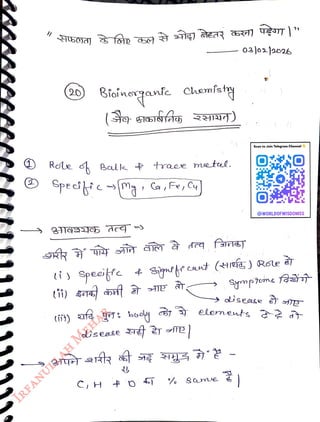 " सफलता के लिए कल से थोड़ा बेहतर करना पड़ेगा। "
03/02/2026
(20) Bioinorganic Chemistry
(जैव अकार्बनिक रसायन)
① Role of Bulk & trace metal.
② Specific → Mg, Ca, Fe, Cu
Scan to Join Telegram Channel
@WORLDOFWISDOMES
→ आवश्यक तत्व →
शरीर में पाये जाने वाले वे तत्व जिनका
(i) Specific & Significant (सार्थक) Role हो
(ii) इनकी कमी हो जाए तो → Symptoms दिखेंगे
→ disease हो जाए
(iii) यदि पुनः body को ये elements दे दें तो
disease सही हो जाए।
→ अपने शरीर की जड़ समुद्र में है -
C, H & O का % same है।
IRFANULLAH